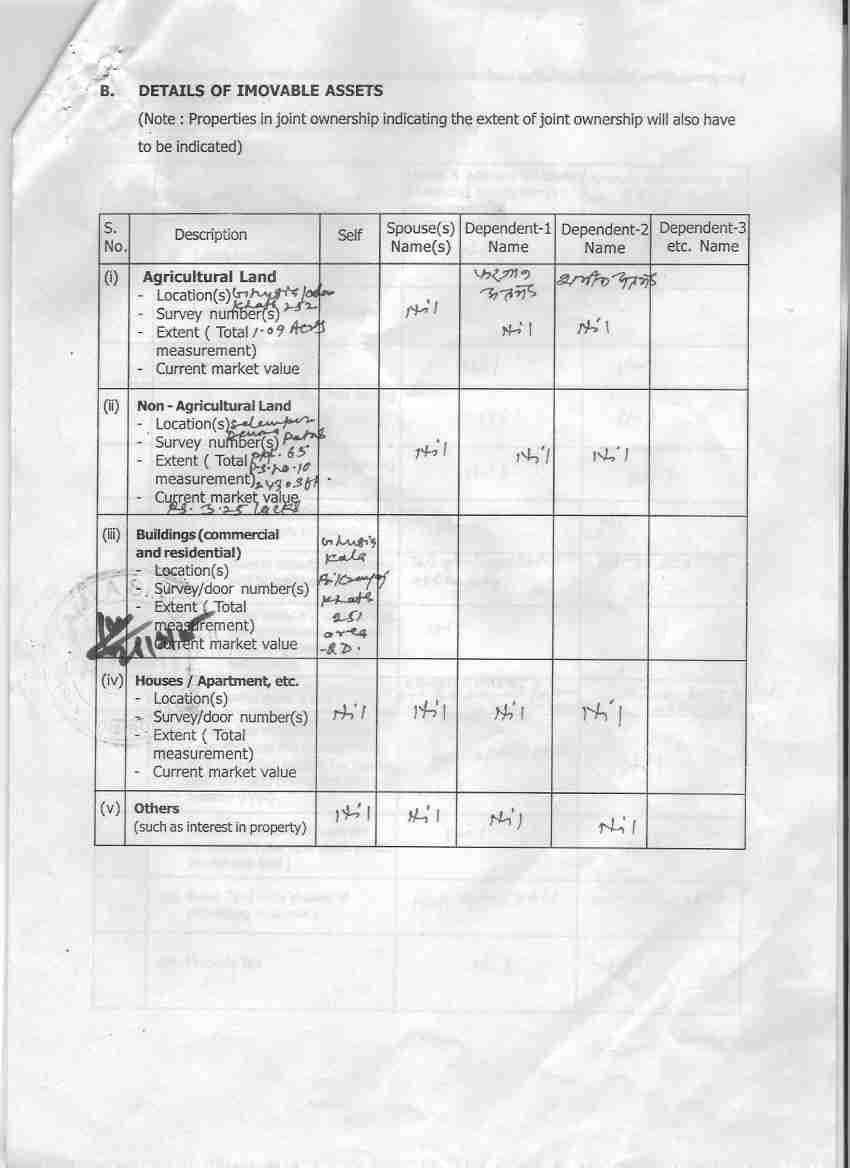 B. DETAILS OF IMOVABLE ASSETS
(Note : Properties in joint ownership indicating the extent of joint ownership will also have
to be indicated)
S. No. Description Self Spouse(s) Name(s) Dependent-1 Name Dependent-2 Name Dependent-3 etc. Name
(i) Agricultural Land
- Location(s)
- Survey number(s) Khata 252 Nil
- Extent ( Total 1.09 Nil Nil
measurement)
- Current market value
(ii) Non - Agricultural Land
- Location(s)
- Survey number(s) Nil Nil Nil
- Extent ( Total 65
measurement)
- Current market value
Rs. 3.25 lacks
(iii) Buildings (commercial
and residential) Kala
- Location(s)
- Survey/door number(s) Khata
- Extent ( Total 251
measurement) area
- Current market value
(iv) Houses / Apartment, etc.
- Location(s)
- Survey/door number(s) Nil Nil Nil Nil
- Extent ( Total
measurement)
- Current market value
(v) Others Nil Nil Nil Nil
(such as interest in property)